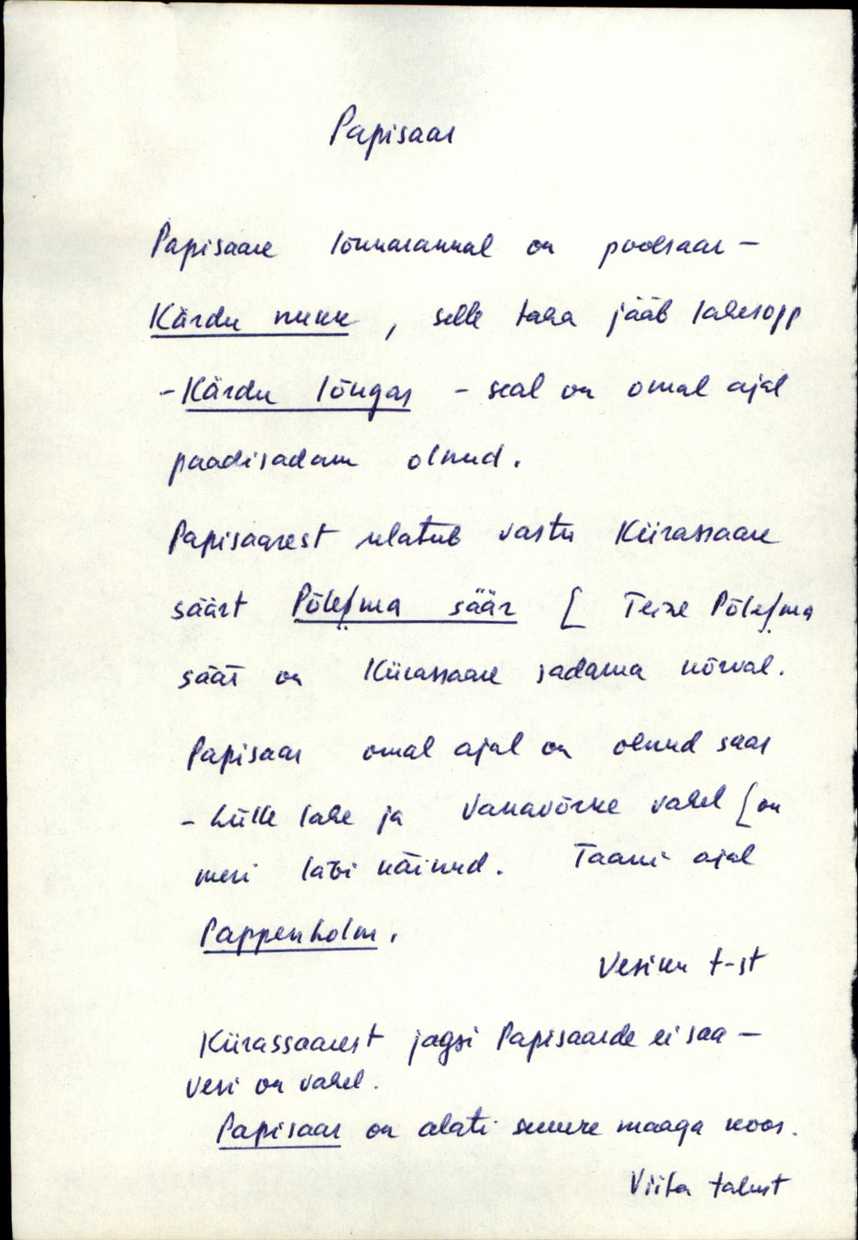 Papisaar
Papisaare lõunarannal on poolsaar –
Kärdu nukk, selle taha jääb lahesopp
– Kärdu lõugas – seal on omal ajal
paadisadam olnud.
Papisaarest ulatub vastu Kiirassaare
säärt Põle/ma säär [ Teine Põle/ma
säär on Kiirassaare sadama kõrval.
Papisaar omal ajal on olnud saar
– hülle lahe ja Vanavõrke vahel [on
meri läbi käinud. Taani ajal
Pappenholm.
Vesiku t-st
Kiirassaarest jagsi Papisaarde ei saa –
vesi on vahel.
Papisaar on alati suure maaga koos.
Viita talust